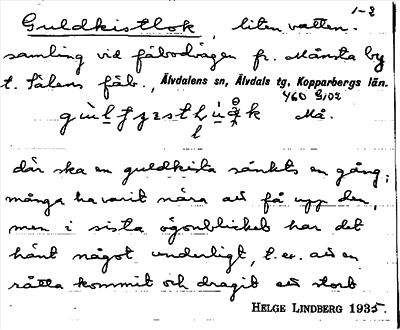 1-2
Guldkistlok, liten vatten-
samling vid fäbodvägen fr. Månsta by
t. Sälens fäb., Älvdalens sn, Älvdals tg, Kopparbergs län.
460 G102
Må.
där ska en guldkista sänkts en gång;
många ha varit nära att få upp den,
men i sista ögonblicket har det
hänt något underligt, t. ex. att en
råtta kommit och dragit ett stort
HELGE LINDBERG 1935.